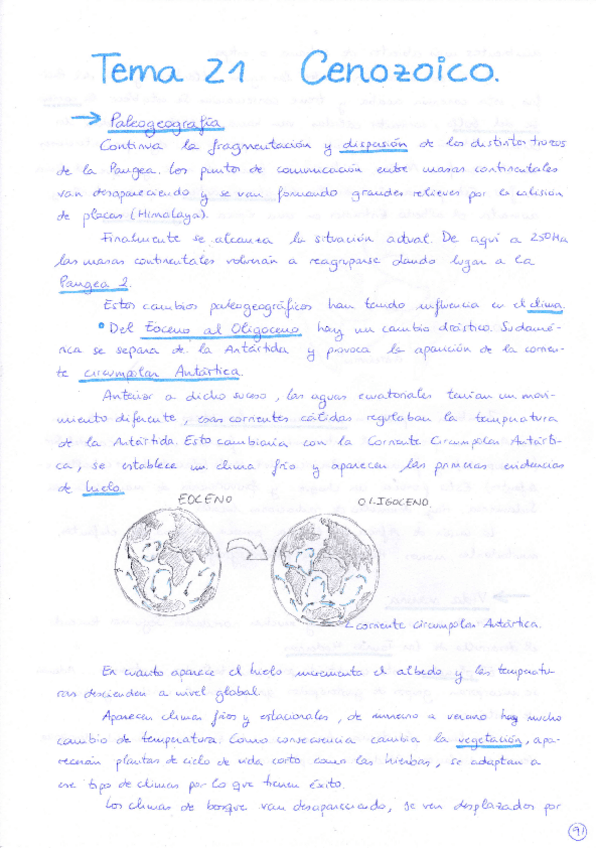 Tema 21 Cenozoico.
→ Paleogeografía
Continua la fragmentación y dispersión de los distintos trozos
de la Pangea. Los puntos de comunicación entre masas continentales
van desapareciendo y se van formando grandes relieves por la colisión
de placas (Himalaya).
Finalmente se alcanza la situación actual. De aquí a 250Ma
las masas continentales volverán a reagruparse dando lugar a la
Pangea 2.
Estos cambios paleogeográficos han tenido influencia en el clima.
• Del Eoceno al Oligoceno hay un cambio drástico. Sudamé-
rica se separa de la Antártida y provoca la aparición de la corrien-
te circumpolar Antártica.
Anterior a dicho suceso, las aguas ecuatoriales tenían un movi-
miento diferente, esas corrientes cálidas regulaban la temperatura
de la Antártida. Esto cambiaría con la Corriente Circumpolar Antárti-
ca, se establece un clima frío y aparecen las primeras evidencias
de hielo.
EOCENO
OLIGOCENO
corriente circumpolar Antártica.
En cuanto aparece el hielo incrementa el albedo y las temperatu-
ras descienden a nivel global.
Aparecen climas fríos y estacionales, de invierno a verano hay mucho
cambio de temperatura. Como consecuencia cambia la vegetación, apa-
recerán plantas de ciclo de vida corto como las hierbas, se adaptan a
ese tipo de climas por lo que tienen éxito.
Los climas de bosque van desapareciendo, se ven desplazados por
91